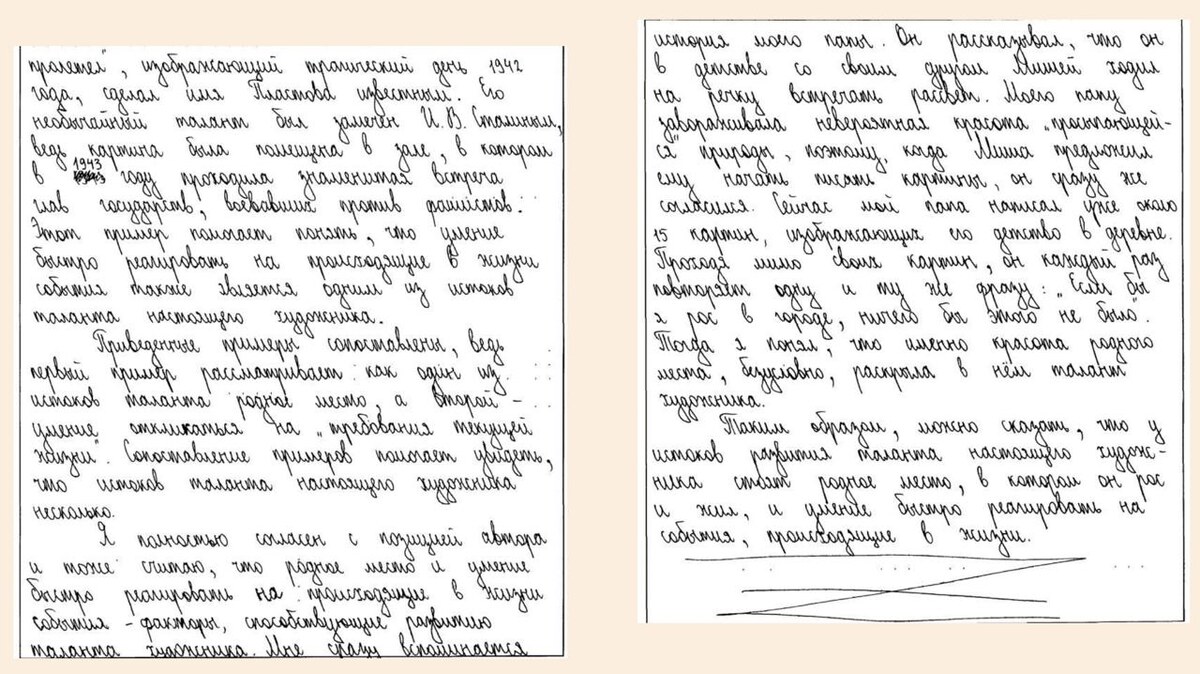 пролетел", изображающий трагический день 1942
года, сделал имя Пластова известным. Его
необычайный талант был замечен И.В. Сталиным,
ведь картина была помещена в зале, в котором
в 1943 году проходила знаменитая встреча
глав государств, воевавших против фашистов.
Этот пример помогает понять, что умение
быстро реагировать на происходящие в жизни
события также является одним из истоков
таланта настоящего художника.
Приведенные примеры сопоставлены, ведь
первый пример рассматривает как один из
истоков таланта родное место, а второй –
умение откликаться на „требования текущей
жизни". Сопоставление примеров помогает увидеть,
что истоков таланта настоящего художника
несколько.
Я полностью согласен с позицией автора
и тоже считаю, что родное место и умение
быстро реагировать на происходящие в жизни
события – факторы, способствующие развитию
таланта художника. Мне сразу вспоминается
история моего папы. Он рассказывал, что он
в детстве со своим другом Мишей ходил
на речку встречать рассвет. Моего папу
завораживала невероятная красота „просыпающей-
ся" природы, поэтому, когда Миша предложил
ему начать писать картины, он сразу же
согласился. Сейчас мой папа написал уже около
15 картин, изображающих его детство в деревне.
Проходя мимо своих картин, он каждый раз
повторяет одну и ту же фразу: „Если бы
я рос в городе, ничего бы этого не было".
Тогда я понял, что именно красота родного
места, безусловно, раскрыла в нём талант
художника.
Таким образом, можно сказать, что у
истоков развития таланта настоящего худож-
ника стоят родное место, в котором он рос
и жил, и умение быстро реагировать на
события, происходящие в жизни.